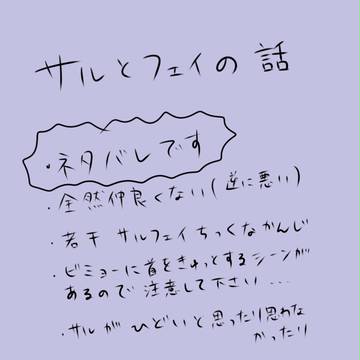 サルとフェイの話
・ネタバレです
・全然仲良くない(逆に悪い)
・若干サルフェイちっくなかんじ
・ビミョーに首をきゅっとするシーンが
あるので注意して下さい....
・サルがひどいと思ったり思わな
かったり